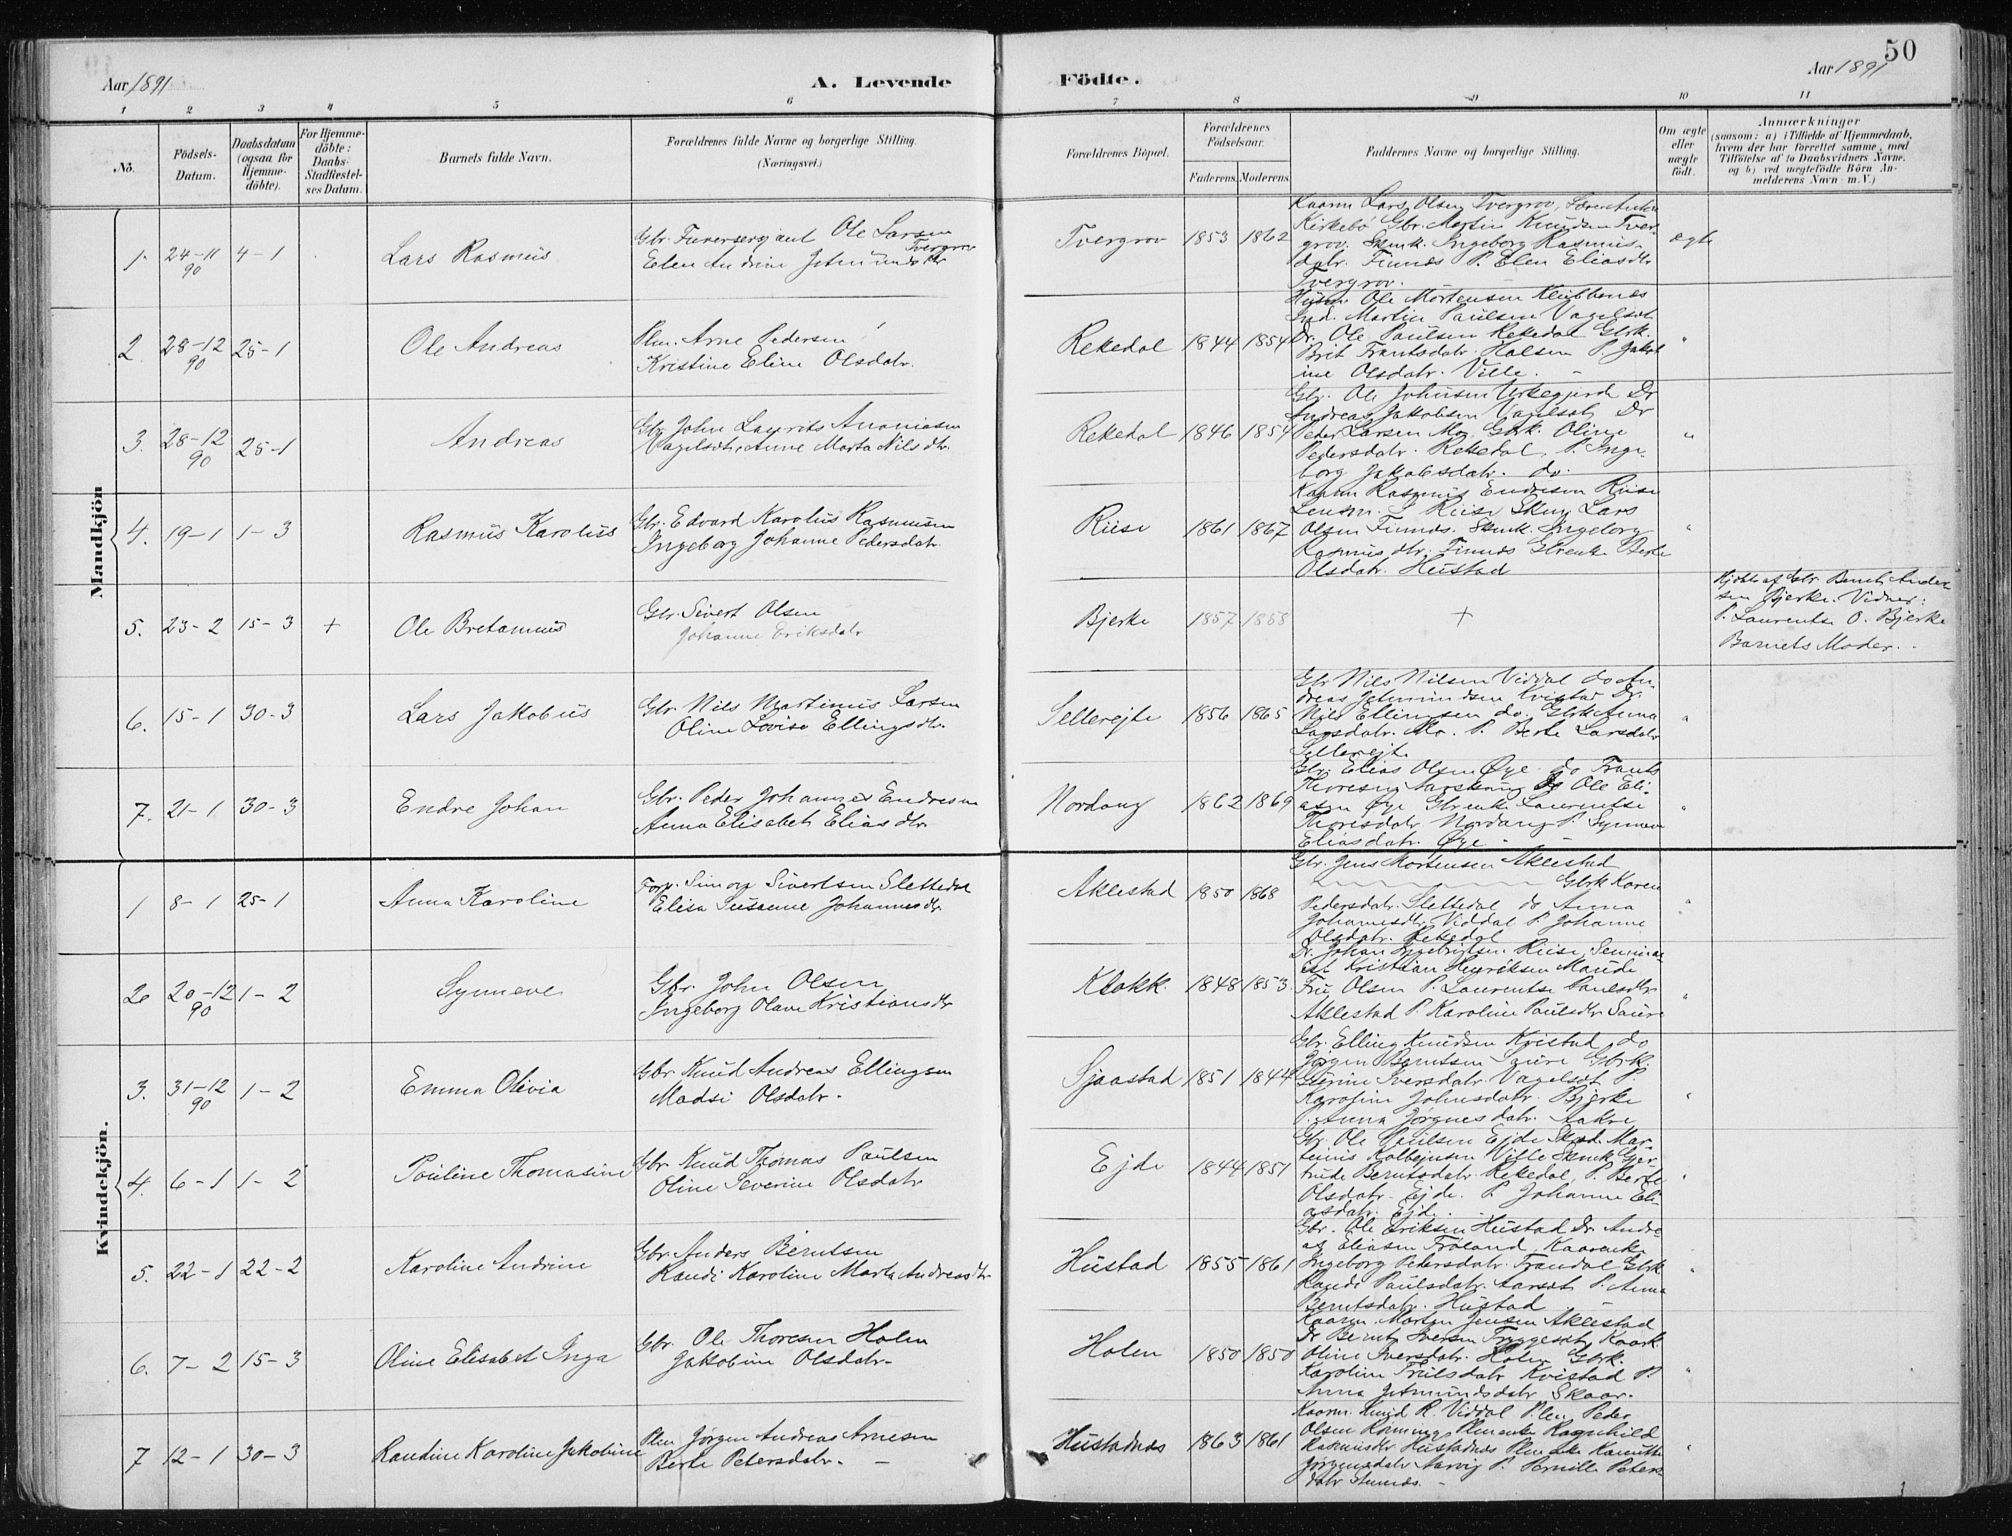 50
Aar 1891 A. Levende Födte. Aar 1891
1 2 3 4 5 6 7 8 9 10 11
No. Födsels-Datum. Daabsdatum (ogsaa for Hjemme-döbte). For Hjemme-döbte: Daabs-Stadfæstel-ses Datum. Barnets fulde Navn. Forældrenes fulde Navne og borgerlige Stilling. (Næringsvei.) Forældrenes Bopæl. Forældrenes Födselsaar. Faderens. Moderens. Faddernes Navne og borgerlige Stilling. Om ægte eller uægte födt. Anmærkninger (saasom: a) i Tilfælde af Hjemmedaab, hvem der har forrettet samme, med Tilföielse af to Daabsvidners Navne. og b) ved uægtefödte Börn An-melderens Navn m. V.)
Mandkjön
1. 24-11 90 4-1 Lars Rasmus Gbr. Furersergiant Ole Larsen Tvergrov
Elen Andrine Jetmundsdtr Tvergrov 1853 1862 Kaarm Lars Olsen Tvergrov,
Kirkebö Gbr. Martin Knudsen Tver-
grov. Skmk. Ingeborg Rasmus-
datr. Finnæs P. Elen Eliasdtr
Tvergrov. ægte
2. 28-12 90 25-1 Ole Andreas Plm. Arne Pedersen
Kristine Eline Olsdatr. Rekedal 1844 1854 Husm. Ole Mortensen Klubbenæs
Ind. Martin Paulsen Vagelsæt
Dr. Ole Paulsen Rekedal Gbrk.
Brit Frantsdatr. Halsen P. Jakob
ine Olsdatr. Ville. "
3. 28-12 90 25-1 Andreas Gbr. John Laurits Ananiasen
Vagelsæt, Anne Marta Nilsdtr. Rekedal 1846 1854 Gbr. Ole Johnsen Urkegjerde Dr
Andreas Jakobsen Vagelsæt Dr
Peder Larsen Mo, Gbrk. Oline
Pedersdatr. Rekedal, P. Inge-
borg Jakobsdatr. do. "
4. 19-1 1-3 Rasmus Karolus Gbr. Edvard Karolus Rasmusen
Ingeborg Johanne Pedersdatr. Riise 1861 1867 Kaarm Rasmus Endresen Riise
Lensm. S Riise Skm Lars
Olsen Finnæs. Skmk. Ingeborg
Rasmusdtr. Finnæs Gbrenke Berte
Olsdatr. Hustad "
5. 23-2 15-3 + Ole Bretamus Gbr. Sivert Olsen
Johanne Eriksdatr Bjerke 1857 1858 + Hjdbt af Gbr. Bernt Ander-
sen Bjerke. Vidner:
P. Laurentse O. Bjerke
Barnets Moder.
6. 15-1 30-3 Lars Jakobus Gbr. Nils Martinus Larsen
Oline Lovise Ellingsdtr. Sellerejte 1856 1865 Gbr Nils Nilsen Viddal do An-
dreas Jetmundsen Kvistad Dr
Nils Ellingsen do. Gbrk Anna
Larsdatr. Mo. P. Berte Larsdatr
Sellerejt. "
7. 21-1 30-3 Endre Johan Gbr. Peder Johannes Endresen
Anna Elisabet Eliasdtr. Nordang 1862 1869 Gbr. Elias Olsen Øye do Frants
Thoresen Ole Eli-
asen Øye Gbrenke Laurentse
Thoresdatr Nordang P. Synneve
Eliasdatr. Øye "
Kvindekjön.
1 8-1 25-1 Anna Karoline Forp. Simon Sivertsen Slettedal
Elisa Susanne Johannesdtr. Aklestad 1850 1868 Gbr. Jens Mortensen Aklestad
Gbrk Karen
Pedersdatr. Slettedal do Anna
Johannesdtr Viddal P. Johanne
Olsdatr. Rekedal "
2. 20-12 90 1-2 Synneve Gbr. John Olsen
Ingeborg Olave Kristiansdtr Klokk. 1848 1853. Dr. Johan Riise, Seminar-
ist Kristian Henriksen Maude
Fru Olsen P. Laurentse Paulsdtr
Aklestad P. Karoline Paulsdtr Saure "
3. 31-12 90 1-2 Emma Olivia Gbr Knud Andreas Ellingsen
Madsi Olsdatr. Sjaastad 1851 1844 Gbr. Elling Knudsen Kvistad do
Jørgen Berntsen Saure Gbrk.
Gurine Iversdatr. Vagelsæt P.
Karoline Johnsdatr. Bjerke
P. Anna Jørgnesdatr. Aakre "
4. 6-1 1-2 Pouline Thomasine Gbr Knud Thomas Paulsen
Oline Severine Olsdatr Ejde 1844 1851 Gbr. Ole Paulsen Ejde Skm. Mar-
tinus Kolbejnsen Ville Skmk Gjer-
trude Berntsdatr. Rekedal, P. Berte
Olsdatr. Ejde. P. Johanne Eli-
asdatr. Ejd. "
5. 22-1 22-2 Karoline Andrine Gbr. Anders Berntsen
Randi Karoline Marta Andreasdtr Hustad 1855 1861 Gbr. Ole Eriksen Hustad Dr. Andre-
as Eliasen Frøland. Kaarenke
Ingeborg Pedersdatr. Trandal Gbrk
Randi Paulsdatr. Aarsæt P. Anna
Berntsdatr. Hustad "
6. 7-2 15-3 Oline Elisabet Inga Gbr. Ole Thoresen Holen
Jakobine Olsdatr. Holen 1850 1850 Kaarm Morten Jensen Aklestad
Dr Bernt Iversen Tryggesæt, Kaark.
Oline Iversdatr. Holen Gbrk.
Karoline Trulsdatr Kvistad P.
Anna Jetmundsdatr Skaar. "
7 12-1 30-3 Randine Karoline Jakobine Plm Jørgen Andreas Arnesen
Berte Petersdatr. Hustadnæs 1863 1861 Kaarm. Knud R. Viddal Plm Peder
Olsen Plmenke Ragnhild
Rasmusdtr Hustadnæs Plmenke
Jørgensdatr Aarvig P. Pernille Peters-
datr "